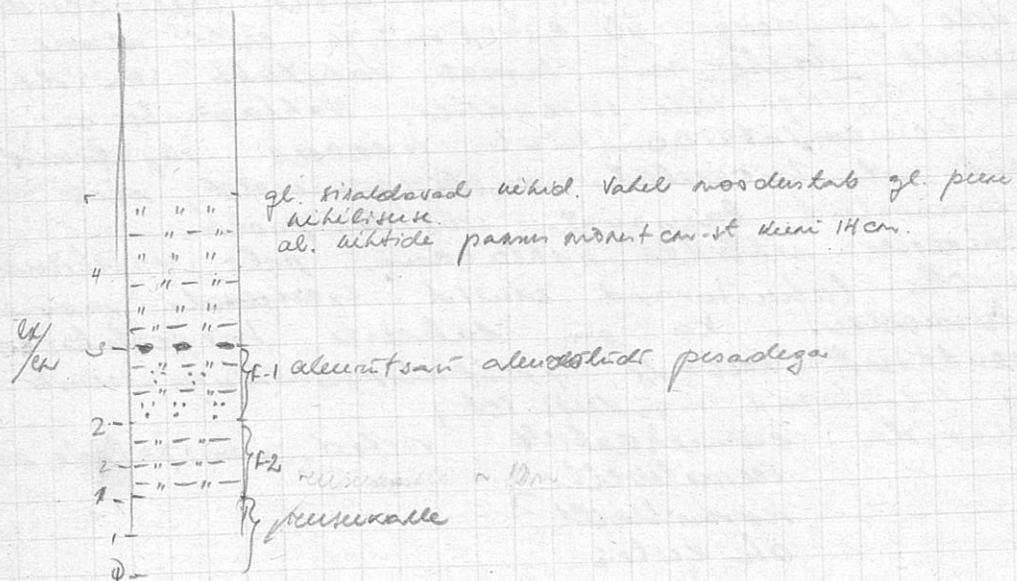 5 gl. sisaldavad kihid. Vahel moodustab gl. peene
kihilisuse.
al. kihtide paksus mõnest cm-st kuni 14 cm.
4
3
F-1 aleuriitsavi aleuroliidi pesadega
2
F-2
~ 10m
1
rusukalle
0